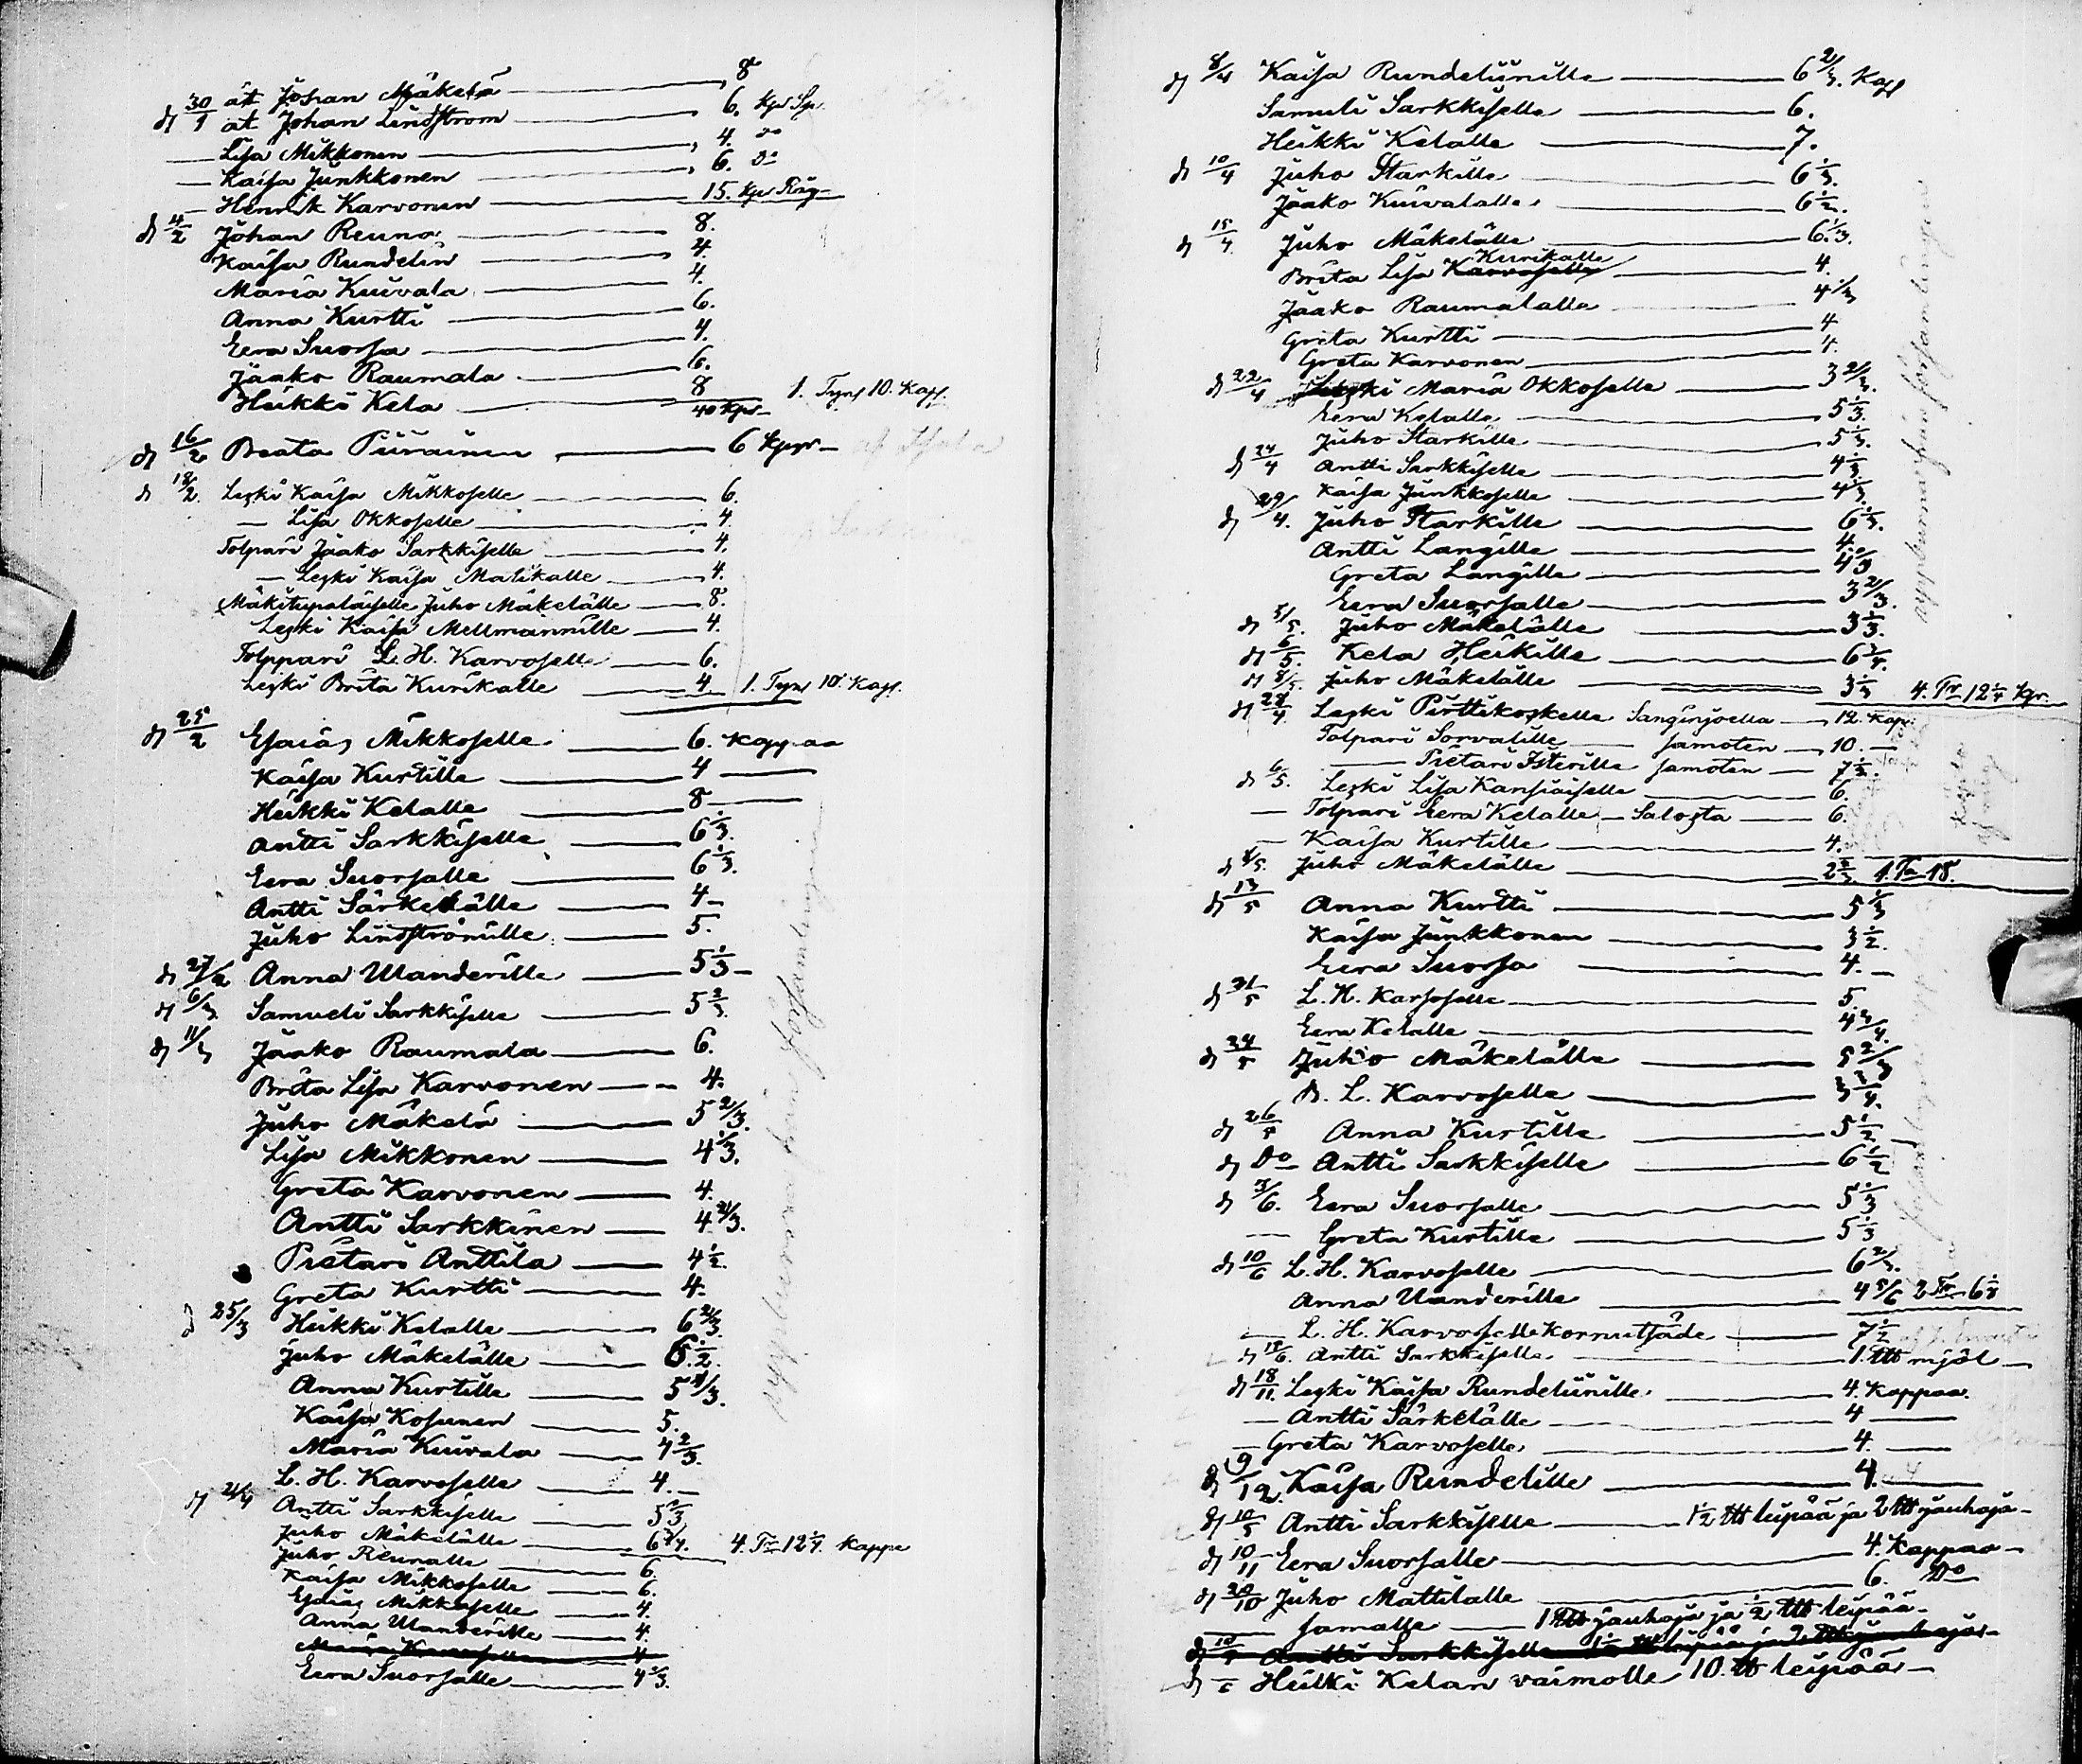 åt Johan Mäkelä 8
d 30/1 åt Johan Lindström 6. kpr Sp.
— Lisa Mikkonen 4. do
— Kaisa Junkkonen 6. Do
— Henrik Karvonen 15. kpr Råg
d 4/2 Johan Reuna 8.
Kaisa Rundelin 4.
Maria Kuivala 4.
Anna Kurtti 6.
Eera Suorsa 4.
Jaako Raumala 6.
Heikki Kela 8
40 kpr 1. Tynr 10. Kapr.
d 16/2 Beata Piirainen 6 kpr
d 18/2. Leski Kaisa Mikkoselle 6.
— Lisa Okkoselle 4.
Tolpari Jaako Sarkkiselle 4.
— Leski Kaisa Matikalle 4.
Mäkitupalaiselle Juho Mäkelälle 8.
Leski Kaisa Mellmannille 4.
Tolppari L. H. Karvoselle 6.
Leski Brita Kurikalle 4. 1. Tynr 10. Kapr.
d 25/2 Esaias Mikkoselle 6. Kappaa
Kaisa Kurtille 4 —
Heikki Kelalle 8 —
Antti Sarkkiselle 6 1/3.
Eera Suorsalle 6 1/3.
Antti Särkelälle 4 —
Juho Lindströmille 5.
d 27/2 Anna Ulanderille 5 1/3 —
d 6/3 Samueli Sarkkiselle 5 2/3.
d 11/3 Jaako Raumala 6.
Brita Lisa Karvonen 4.
Juho Mäkelä 5 2/3.
Lisa Mikkonen 4 1/3.
Greta Karvonen 4.
Antti Sarkkinen 4 2/3.
Pietari Anttila 4 1/2.
Greta Kurtti 4.
d 25/3 Heikki Kelalle 6 2/3.
Juho Mäkelälle 6 1/2.
Anna Kurtille 5 1/3.
Kaisa Kosunen 5.
Maria Kuivala 4 2/3.
L. H. Karvoselle 4. —
d 2/4 Antti Sarkkiselle 5 1/3
Juho Mäkelälle 6 3/4. 4. Tr 12 1/4. kappa
Juho Reunalle 6.
Kaisa Mikkoselle 6.
Esaias Mikkoselle 4.
Anna Ulanderille 4.
Maria Karvoselle 4
Eera Suorsalle 4 2/3.
uppburna från församlingen
d 8/4 Kaisa Rundeliinille 6 2/3. Kapr
Samuli Sarkkiselle 6.
Heikki Kelalle 7.
d 10/4 Juho Starkille 6 1/3.
Jaako Kuivalalle 6 1/2.
d 15/4 Juho Mäkelälle 6. 1/3.
Kurikalle
Brita Lisa Karvoselle 4.
Jaako Raumalalle 4 1/3
Greta Kurtti 4
Greta Karvonen 4.
d 22/4 Leski Maria Okkoselle 3 2/3.
Eera Kelalle 5 1/3.
Juho Starkille 5 1/3.
d 24/4 Antti Sarkkiselle 4 1/3
Kaisa Junkkoselle 4 1/3.
d 29/4. Juho Starkille 6 1/3.
Antti Langille 4.
Greta Langille
Eera Suorsalle 3 2/3.
d 5/5. Juho Mäkelälle 3 1/3.
d 6/5. Kela Heikille 6 1/4.
d 8/5. Juho Mäkelälle 3 1/3 4. Tr 12 1/4 kpr.
d 28/4. Leski Pirttikoskelle Sanginjoella 12. Kapr.
Tolpari Sorvalille samoten 10. —
— Pietari Isterille samoten 7 1/2.
d 6/5. Leski Lisa Kansiaiselle 6.
— Tolpari Eera Kelalle — Salosta 6.
— Kaisa Kurtille 4.
d 8/5. Juho Mäkelälle 2 2/3 1. Tr 18.
d 13/5 Anna Kurtti 5 1/3
Kaisa Junkkonen 3 1/2.
Eera Suorsa 4. —
d 21/5 L. H. Karvoselle 5
Eera Kelalle 4 3/4.
d 24/5 Juho Mäkelälle 5 2/3
B. L. Karvoselle 3 3/4.
d 26/5 Anna Kurtille 5 1/2 —
d Do Antti Sarkkiselle 6 1/2
d 3/6. Eera Suorsalle 5 1/3
— Greta Kurtille 5 1/3
d 10/6 L. H. Karvoselle 6 2/3.
Anna Ulanderille 4 5/6 2 Tr 6 1/3
— L. H. Karvoselle kornutsäde 7 1/2
d 18/6. Antti Sarkkiselle 1. ℔ mjöl —
d 18/11. Leski Kaisa Rundeliinille 4. Kappaa.
— Antti Särkelälle 4 —
— Greta Karvoselle 4. —
d 9/12. Kaisa Rundelille 4. —
d 10/5 Antti Sarkkiselle 1 1/2 ℔ leipää ja 2 ℔ jauhoja —
d 10/11 Eera Suorsalle 4. Kappaa —
d 20/10 Juho Mattilalle 6. Do
— samalle 1 ℔ jauhoja ja 1/2 ℔ leipää —
d 10/5 Antti Sarkkiselle 1 1/2 ℔ leipää ja 2 ℔ jauhoja —
d — Heikki Kelan vaimolle 10. ℔ leipää —
uppburna från församlingen